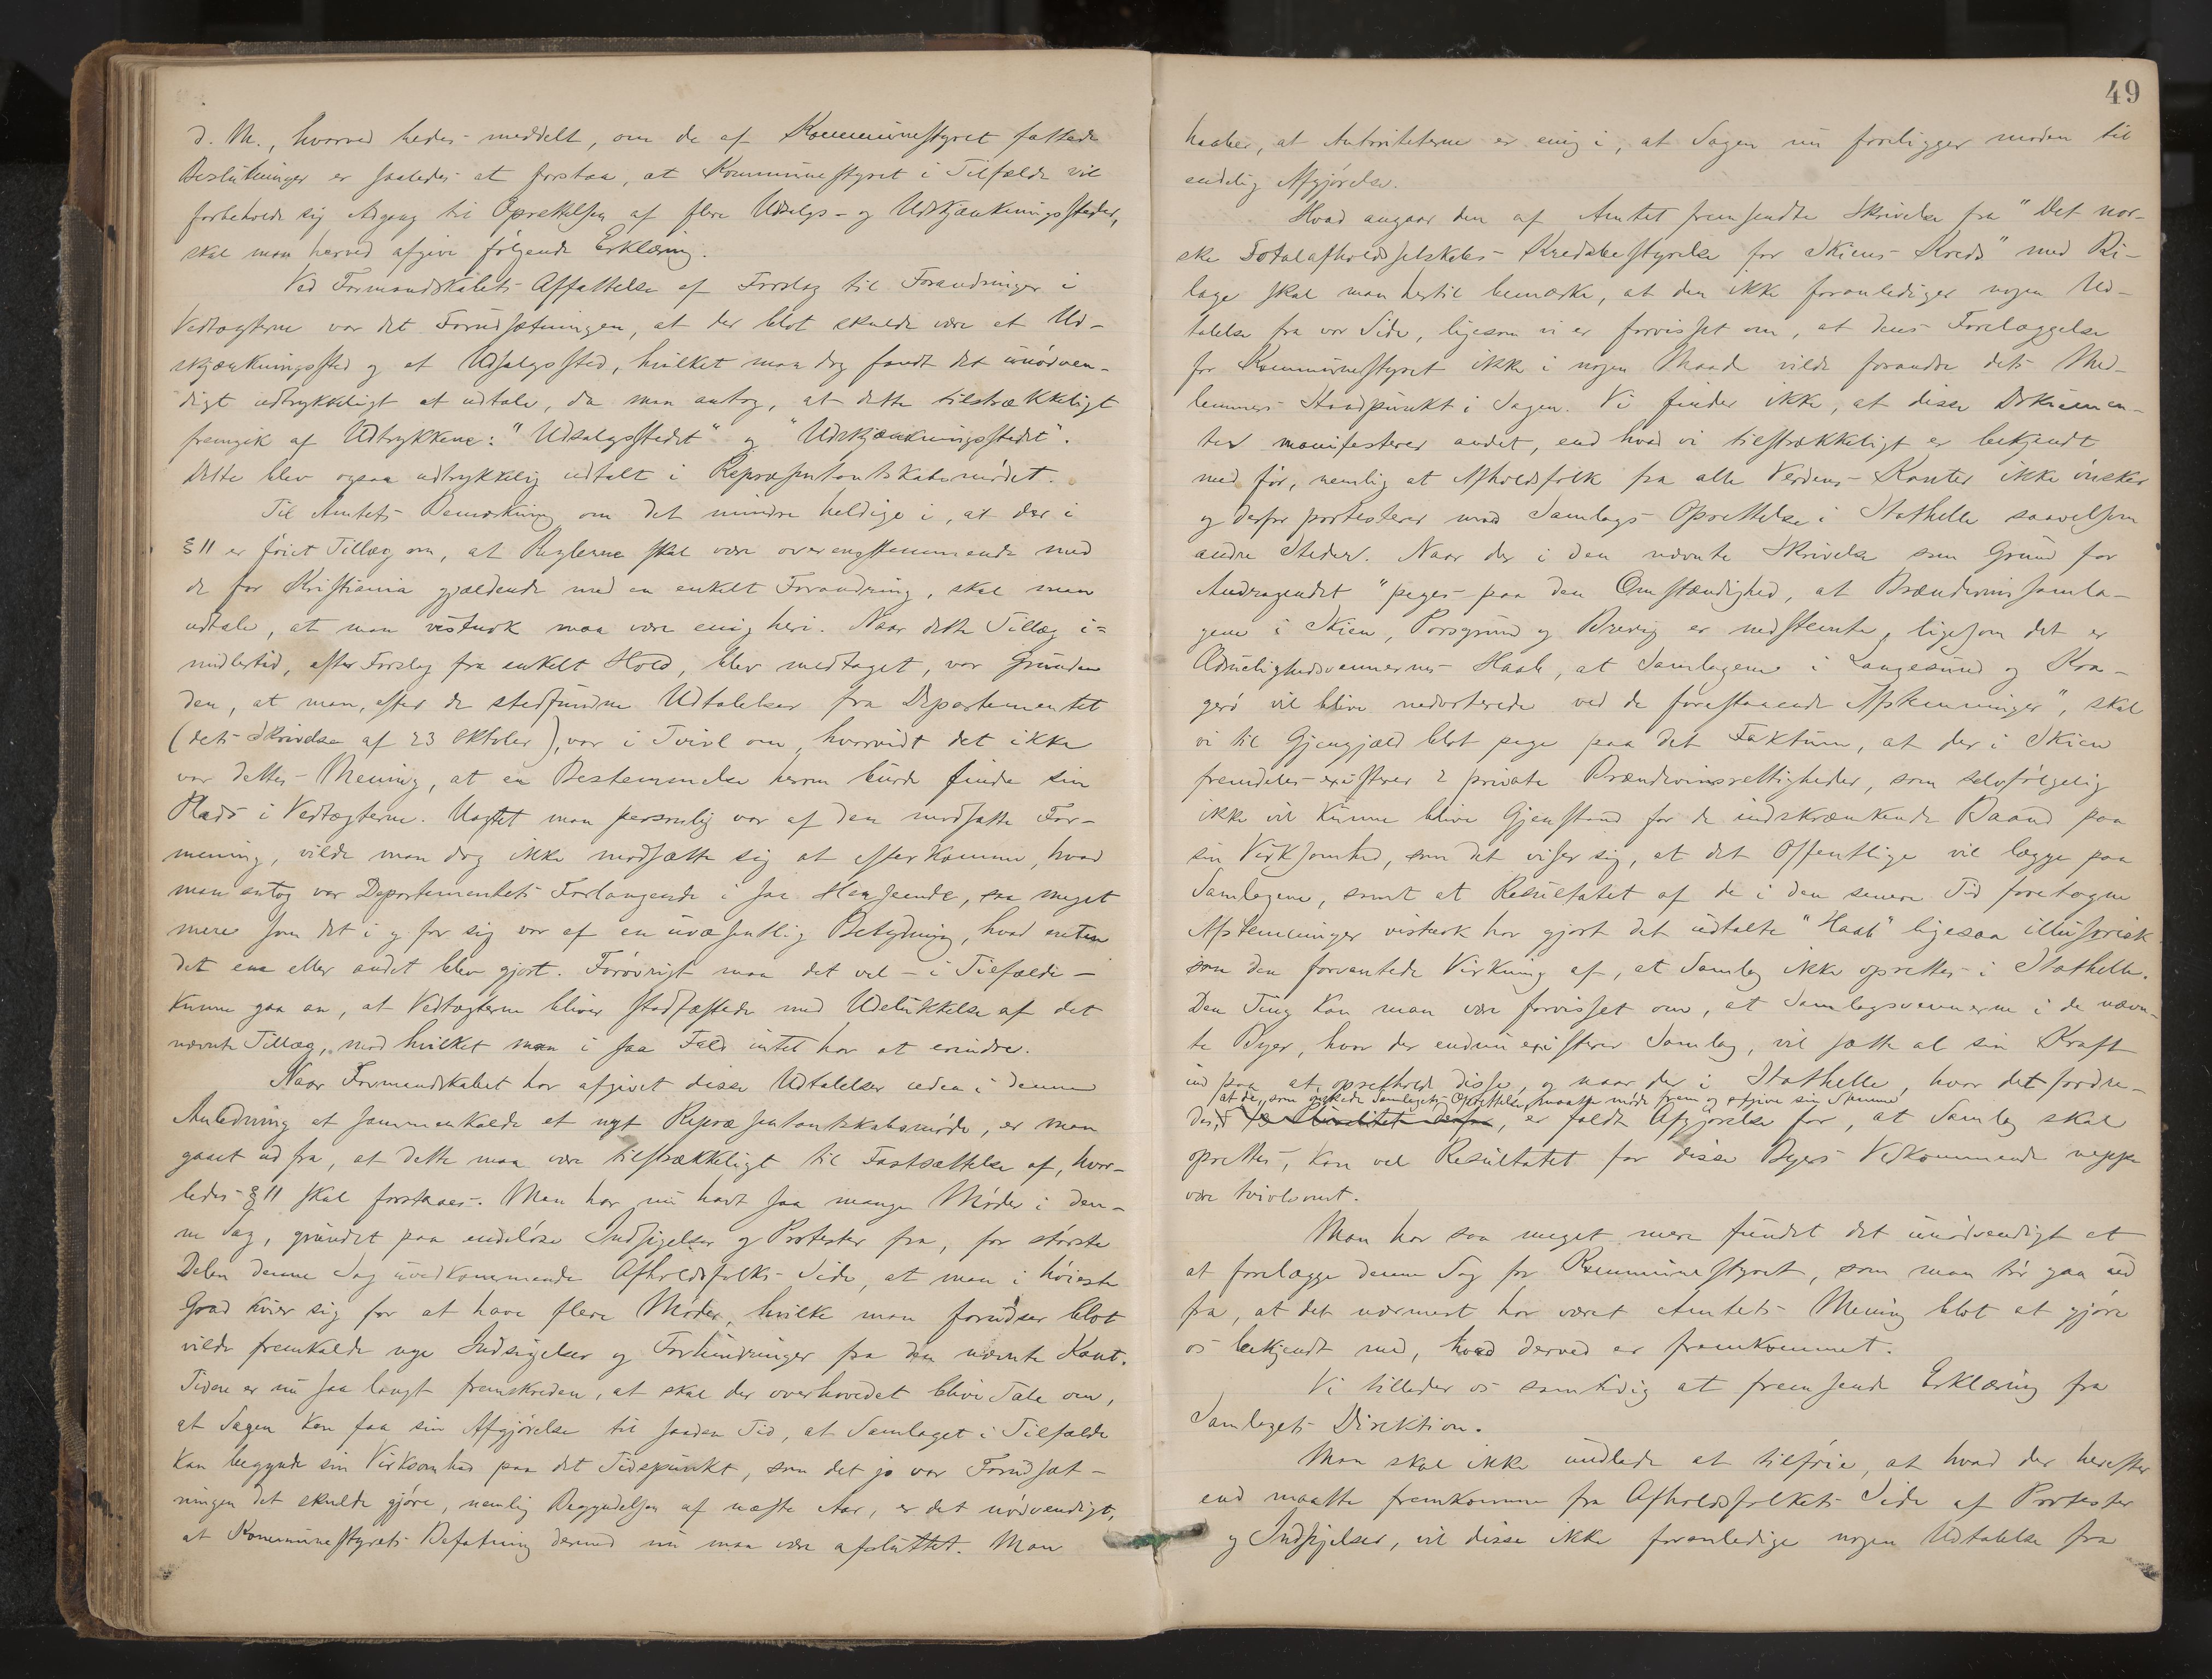 d. M., hvorved bedes meddelt, om de af Kommunestyret fattede
Beslutninger er saaledes at forstaa, at Kommunestyret i Tilfælde vil
forbeholde sig Adgang til Oprettelsen af flere Udsalgs- og Udskjænkningssteder,
skal man herved afgive følgende Erklæring.
Ved Formandskabets Affattelse af Forslag til Forandringer i
Vedtægterne var det Forudsætningen, at der blot skulde være et Ud-
skjænkningssted og et Udsalgssted, hvilket man dog fandt det unødven-
digt udtrykkeligt at udtale, da man antog, at dette tilstrækkeligt
fremgik af Udtrykkene: "Udsalgsstedet" og "Udskjænkningsstedet".
Dette blev ogsaa udtrykkelig udtalt i Repræsentantskabsmødet.
Til Amtets Bemærkning om det mindre heldige i, at der i
§ 11 er føiet Tillæg om, at Reglerne skal være overensstemmende med
de for Kristiania gjældende med en enkelt Forandring, skal man
udtale, at man vistnok maa være enig heri. Naar dette Tillæg i=
midlertid, efter Forslag fra enkelt Hold, blev medtaget, var Grunden
den, at man, efter de stedfundne Udtalelser fra Departementet
(dets Skrivelse af 23 Oktober), var i Tvivl om, hvorvidt det ikke
var dettes Mening, at en Bestemmelse herom burde finde sin
Plads i Vedtægterne. Uagtet man personlig var af den modsatte For-
mening, vilde man dog ikke modsætte sig at efterkomme, hvad
man antog var Departementets Forlangende i saa Henseende, saa meget
mere som det i og for sig var af en uvæsentlig Betydning, hvad enten
det ene eller andet blev gjort. Forøvrigt maa det vel - i Tilfælde -
kunne gaa an, at Vedtægterne bliver stadfæstede med Udelukkelse af det
nævnte Tillæg, mod hvilket man i saa Fald intet har at erindre.
Naar Formandskabet har afgivet disse Udtalelser uden i denne
Anledning at sammenkalde et nyt Repræsentantskabsmøde, er man
gaaet ud fra, at dette maa være tilstrækkeligt til Fastsættelse af, hvor-
ledes § 11 skal forstaaes. Man har nu havt saa mange Møder i den-
ne Sag, grundet paa endeløse Indsigelser og Protester fra, for største
Delen denne Sag uvedkommende Afholdsfolks Side, at man i høieste
Grad kvier sig for at have flere Møder, hvilke man forudser blot
vilde fremkalde nye Indsigelser og Forhindringer fra den nævnte Kant.
Tiden er nu saa langt fremskreden, at skal der overhovedet blive Tale om,
at Sagen kan faa sin Afgjørelse til saadan Tid, at Samlaget i Tilfælde
kan begynde sin Virksomhed paa det Tidspunkt, som det jo var Forudsæt-
ningen det skulde gjøre, nemlig Begyndelsen af næste Aar, er det nødvendigt,
at Kommunestyrets Befatning dermed nu maa være afsluttet. Man
49
haaber, at Autoriteterne er enig i, at Sagen nu foreligger moden til
endelig Afgjørelse.
Hvad angaar den af Amtet fremsendte Skrivelse fra "Det nor-
ske Totalafholdsselskabs Kredsbestyrelse for Skiens Kreds" med Bi-
lage skal man hertil bemærke, at den ikke foranlediger nogen Ud-
talelse fra vor Side, ligesom vi er forvisset om, at dens Forelæggelse
for Kommunestyret ikke i nogen Maade vilde forandre dets Med-
lemmers Standpunkt i Sagen. Vi finder ikke, at disse Dokumen-
ter manifesterer andet, end hvad vi tilstrækkeligt er bekjendt
med før, nemlig at Afholdsfolk fra alle Verdens Kanter ikke ønsker
og derfor protesterer mod Samlags Oprettelse i Stathelle saavelsom
andre Steder. Naar der i den nævnte Skrivelse som Grund for
Andragendet "peges paa den Omstændighed, at Brændevinssamla-
gene i Skien, Porsgrund og Brevig er nedstemte, ligesom det er
Ædruelighedsvennernes Haab, at Samlagene i Langesund og Kra-
gerø vil blive nedvoterede ved de forestaaende Afstemninger", skal
vi til Gjengjæld blot pege paa det Faktum, at der i Skien
fremdeles existerer 2 private Brændevinsrettigheder, som selvfølgelig
ikke vil kunne blive Gjenstand for de indskrænkende Baand paa
sin Virksomhed, som det viser sig, at det Offentlige vil lægge paa
Samlagene, samt at Resultatet af de i den senere Tid foretagne
Afstemninger vistnok har gjort det udtalte "Haab" ligesaa illusorisk
som den forventede Virkning af, at Samlag ikke oprettes i Stathelle.
Den Ting kan man være forvisset om, at Samlagsvennerne i de nævn-
te Byer, hvor der endnu existerer Samlag, vil sætte al sin Kraft
ind paa at opretholde disse, og naar der i Stathelle, hvor det fordre-
/at de, som ønskede Samlagets Oprettelse, maatte møde frem og afgive sin Stemme
des, Pluralitet derfor, er faldt Afgjørelse for, at Samlag skal
oprettes, kan vel Resultatet for disse Byers Vedkommende neppe
være tvivlsomt.
Man har saa meget mere fundet det unødvendigt at
at forelægge denne Sag for Kommunestyret, som man tør gaa ud
fra, at det nærmest har været Amtets Mening blot at gjøre
os bekjendt med, hvad derved er fremkommet.
Vi tillader os samtidig at fremsende Erklæring fra
Samlagets Direktion.
Man skal ikke undlade at tilføie, at hvad der herefter
end maatte fremkomme fra Afholdsfolkets Side af Protester
og Indsigelser, vil disse ikke foranledige nogen Udtalelse fra